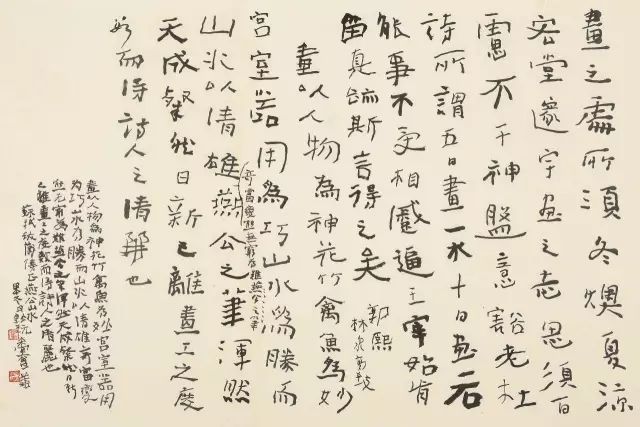 畫之處所須冬燠夏涼
宏堂邃宇畫之志思須百
慮不干神盤意豁老杜
詩所謂五日畫一水十日畫一石
能事不受相蹙逼王宰始肯
留真跡斯言得之矣
郭熙
林泉高致
畫以人物為神花竹禽魚為妙
宮室器用為巧山水為勝而
山水以清雄燕公之筆渾然
奇富變態無窮為難燕公之筆
天成粲然日新已離畫工之度
數而得詩人之清麗也
畫以人物為神花竹禽魚為妙宮室器用
為巧山水為勝而山水以清雄奇富變
態無窮為難燕公之筆渾然天成粲然日新
已離畫工之度數而得詩人之清麗也
蘇軾跋蒲傳正燕公山水